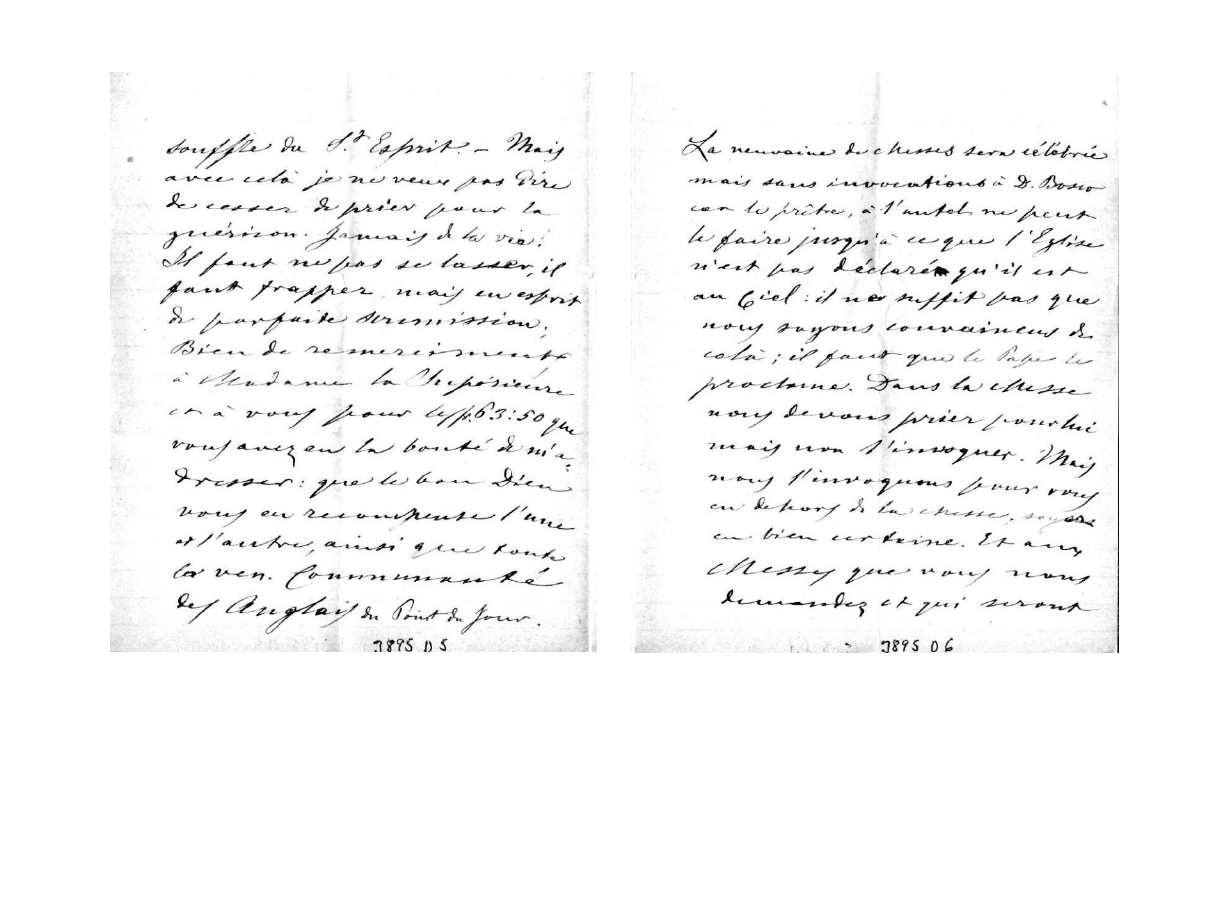 souffle du S.t Esprit. – Mais
avec celà je ne veux pas dire
de cesser de prier pour la
guérison. Jamais de la vie!
Il faut ne pas se lasser, il
faut frapper, mais en esprit
de parfaite soumission.
Bien de remerciments
à Madame la Supérieure
et à vous pour les fr. 63:50 que
vous avez eu la bonté de m'a-
dresser: que le bon Dieu
vous en recompense l'une
et l'autre, ainsi que toute
la ven. Communauté
des Anglais du Point du Jour.
3895 D 5
La neuvaine de Messes sera célébrée
mais sans invocations à D. Bosco
car le prêtre, à l'autel ne peut
le faire jusqu'à ce que l'Eglise
n'est pas déclaré qu'il est
au Ciel: il ne suffit pas que
nous soyons convaincus de
celà; il faut que le Pape le
proclame. Dans la Messe
nous devons prier pour lui
mais non l'invoquer. Mais
nous l'invoquons pour vous
en dehors de la Messe, soyez
en bien certaine. Et aux
Messes que vous nous
demandez et qui seront
3895 D6